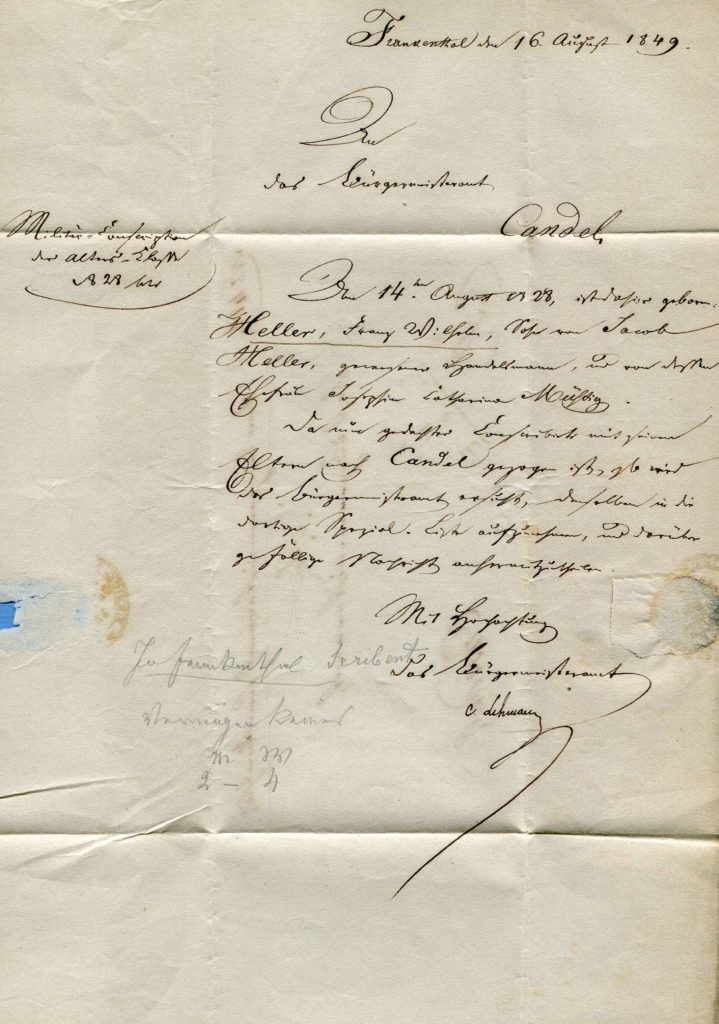 Frankenthal den 16. August 1849.
An
das Bürgermeisteramt
Candel,
Militär-Conscription
der Alters-Klasse
1828 betr
Den 14ten August 1828, ist dahier geboren:
Heller, Franz Wilhelm, Sohn von Jacob
Heller, gewesener Handelsmann, und von dessen
Ehefrau Josephine Catharina
Da nun gedachter Conscribirte mit seinen
Eltern nach Candel gezogen ist, so wird
das Bürgermeisteramt ersucht, denselben in die
dortige Spezial-Liste aufzunehmen, und darüber
gefällige Nachricht anher mitzutheilen.
Mit Hochachtung
Das Bürgermeisteramt
C. Lehmann
In Frankenthal Scribent
Vermögen keines
M W
2 – 4